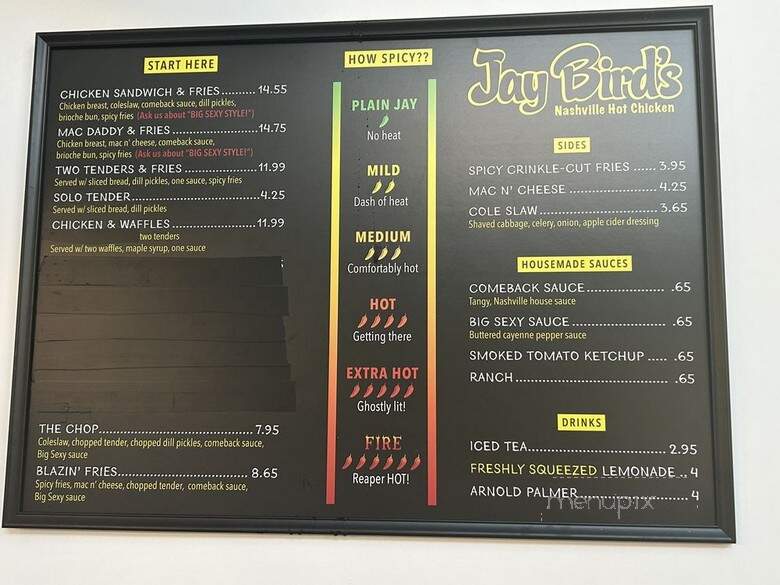 START HERE
CHICKEN SANDWICH & FRIES.......... 14.55
Chicken breast, coleslaw, comeback sauce, dill pickles,
brioche bun, spicy fries (Ask us about "BIG SEXY STYLE!")
MAC DADDY & FRIES ........................ 14.75
Chicken breast, mac n' cheese, comeback sauce,
brioche bun, spicy fries (Ask us about "BIG SEXY STYLE!")
TWO TENDERS & FRIES .................... 11.99
Served w/ sliced bread, dill pickles, one sauce, spicy fries
SOLO TENDER.................................. 4.25
Served w/ sliced bread, dill pickles
CHICKEN & WAFFLES ........................ 11.99
two tenders
Served w/ two waffles, maple syrup, one sauce
THE CHOP........................................ 7.95
Coleslaw, chopped tender, chopped dill pickles, comeback sauce,
Big Sexy sauce
BLAZIN' FRIES.................................. 8.65
Spicy fries, mac n' cheese, chopped tender, comeback sauce,
Big Sexy sauce
HOW SPICY??
PLAIN JAY
No heat
MILD
Dash of heat
MEDIUM
Comfortably hot
HOT
Getting there
EXTRA HOT
Ghostly lit!
FIRE
Reaper HOT!
Jay Bird's
Nashville Hot Chicken
SIDES
SPICY CRINKLE-CUT FRIES ...... 3.95
MAC N' CHEESE ...................... 4.25
COLE SLAW............................ 3.65
Shaved cabbage, celery, onion, apple cider dressing
HOUSEMADE SAUCES
COMEBACK SAUCE................... .65
Tangy, Nashville house sauce
BIG SEXY SAUCE ...................... .65
Buttered cayenne pepper sauce
SMOKED TOMATO KETCHUP ..... .65
RANCH.................................... .65
DRINKS
ICED TEA................................ 2.95
FRESHLY SQUEEZED LEMONADE .. 4
ARNOLD PALMER...................... 4
menupix